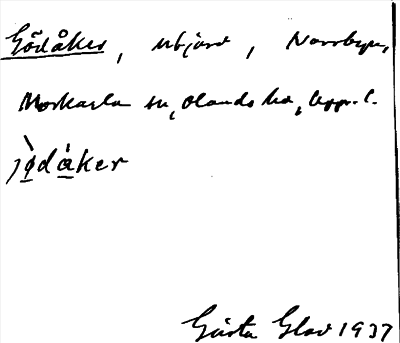 Gödåker, utjord, Norrbyn,
Morkarla sn, Olands hd, Uppl.
jödåker
Gösta Glav 1937